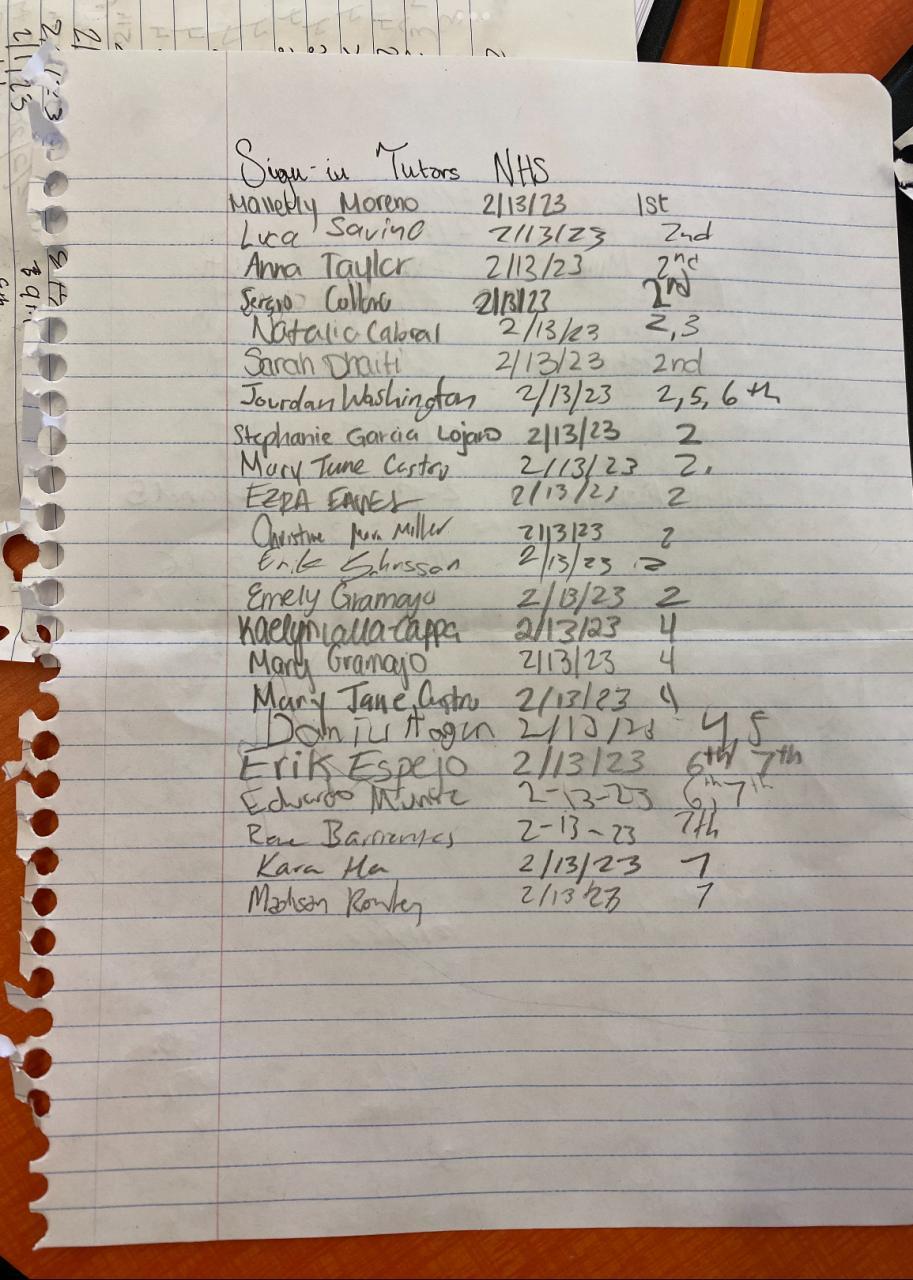 Sign-in Tutors NHS
Moreno 2/13/23 1st
Luca Savino 2/13/23 2nd
Anna Taylor 2/13/23 2nd
Sergio 2/13/23 2nd
Natalia Cabral 2/13/23 2,3
Sarah Dhaiti 2/13/23 2nd
Jourdan Washington 2/13/23 2, 5, 6th
Stephanie Garcia Lojano 2/13/23 2
Mary Jane Castro 2/13/23 2.
EZRA 2/13/23 2
Christine Miller 2/13/23 2
Erik 2/13/23 2
Emely Gramajo 2/13/23 2
2/13/23 4
Mary Gramajo 2/13/23 4
Mary Jane Castro 2/13/23 4
Hogen 2/13/23 4,5
Erik Espejo 2/13/23 6th 7th
2-13-23 6th, 7th
2-13-23 7th
Kara Ha 2/13/23 7
Madison 2/13/23 7